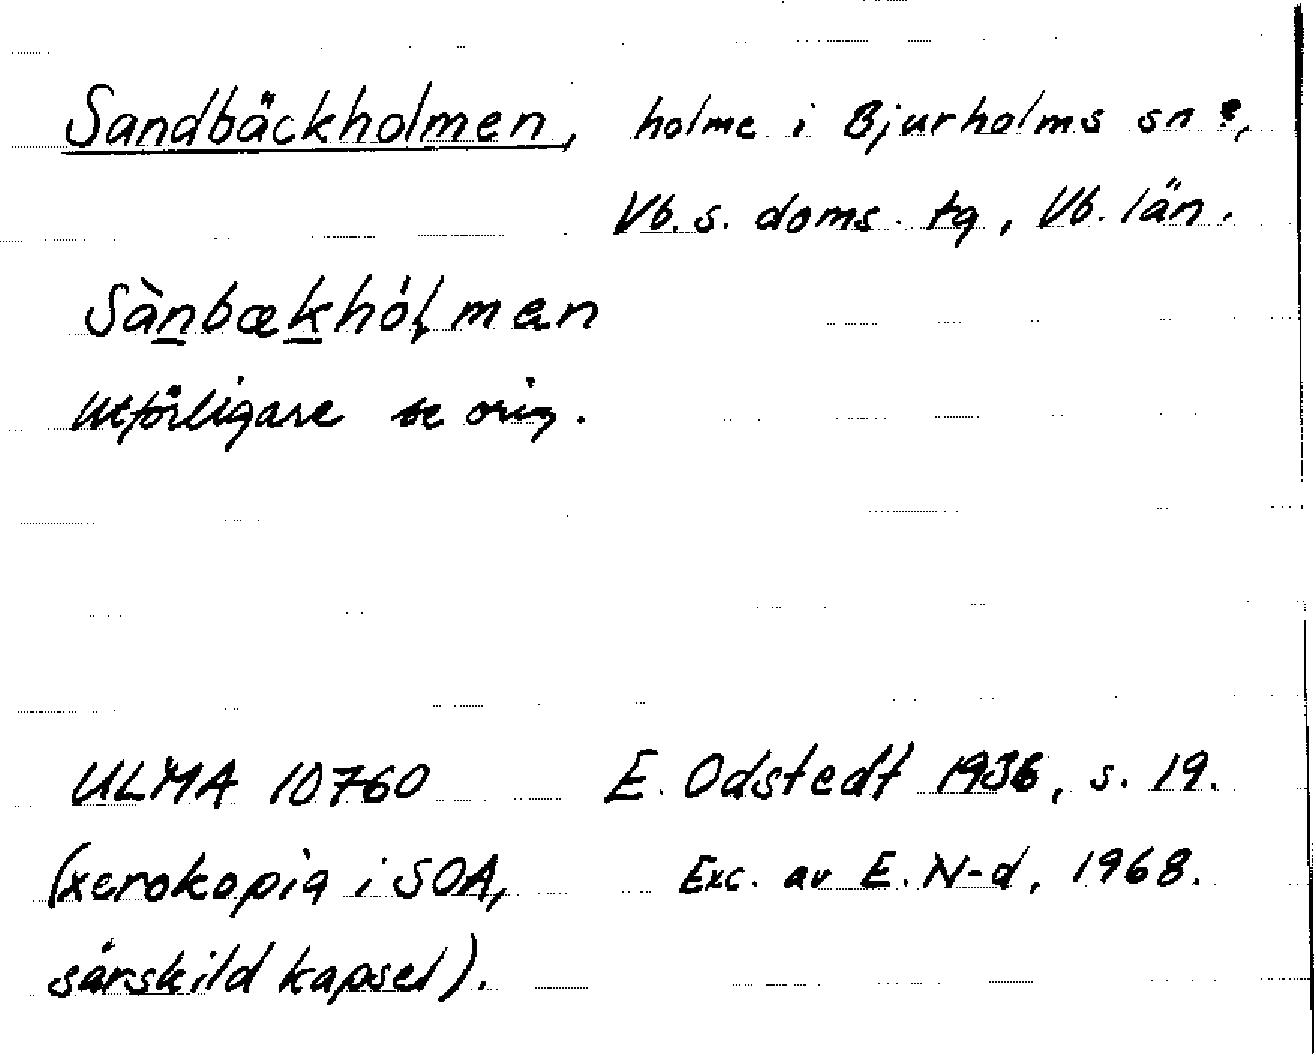 Sandbäckholmen, holme i Bjurholms sn?,
Vb. s. doms. tg, Vb. län.
Sànbækhólman
Utförligare se orig.
ULMA 10760 E. Odstedt 1936, s. 19.
(xerokopia i SOA, Exc. av E. N-d, 1968.
särskild kapsel).